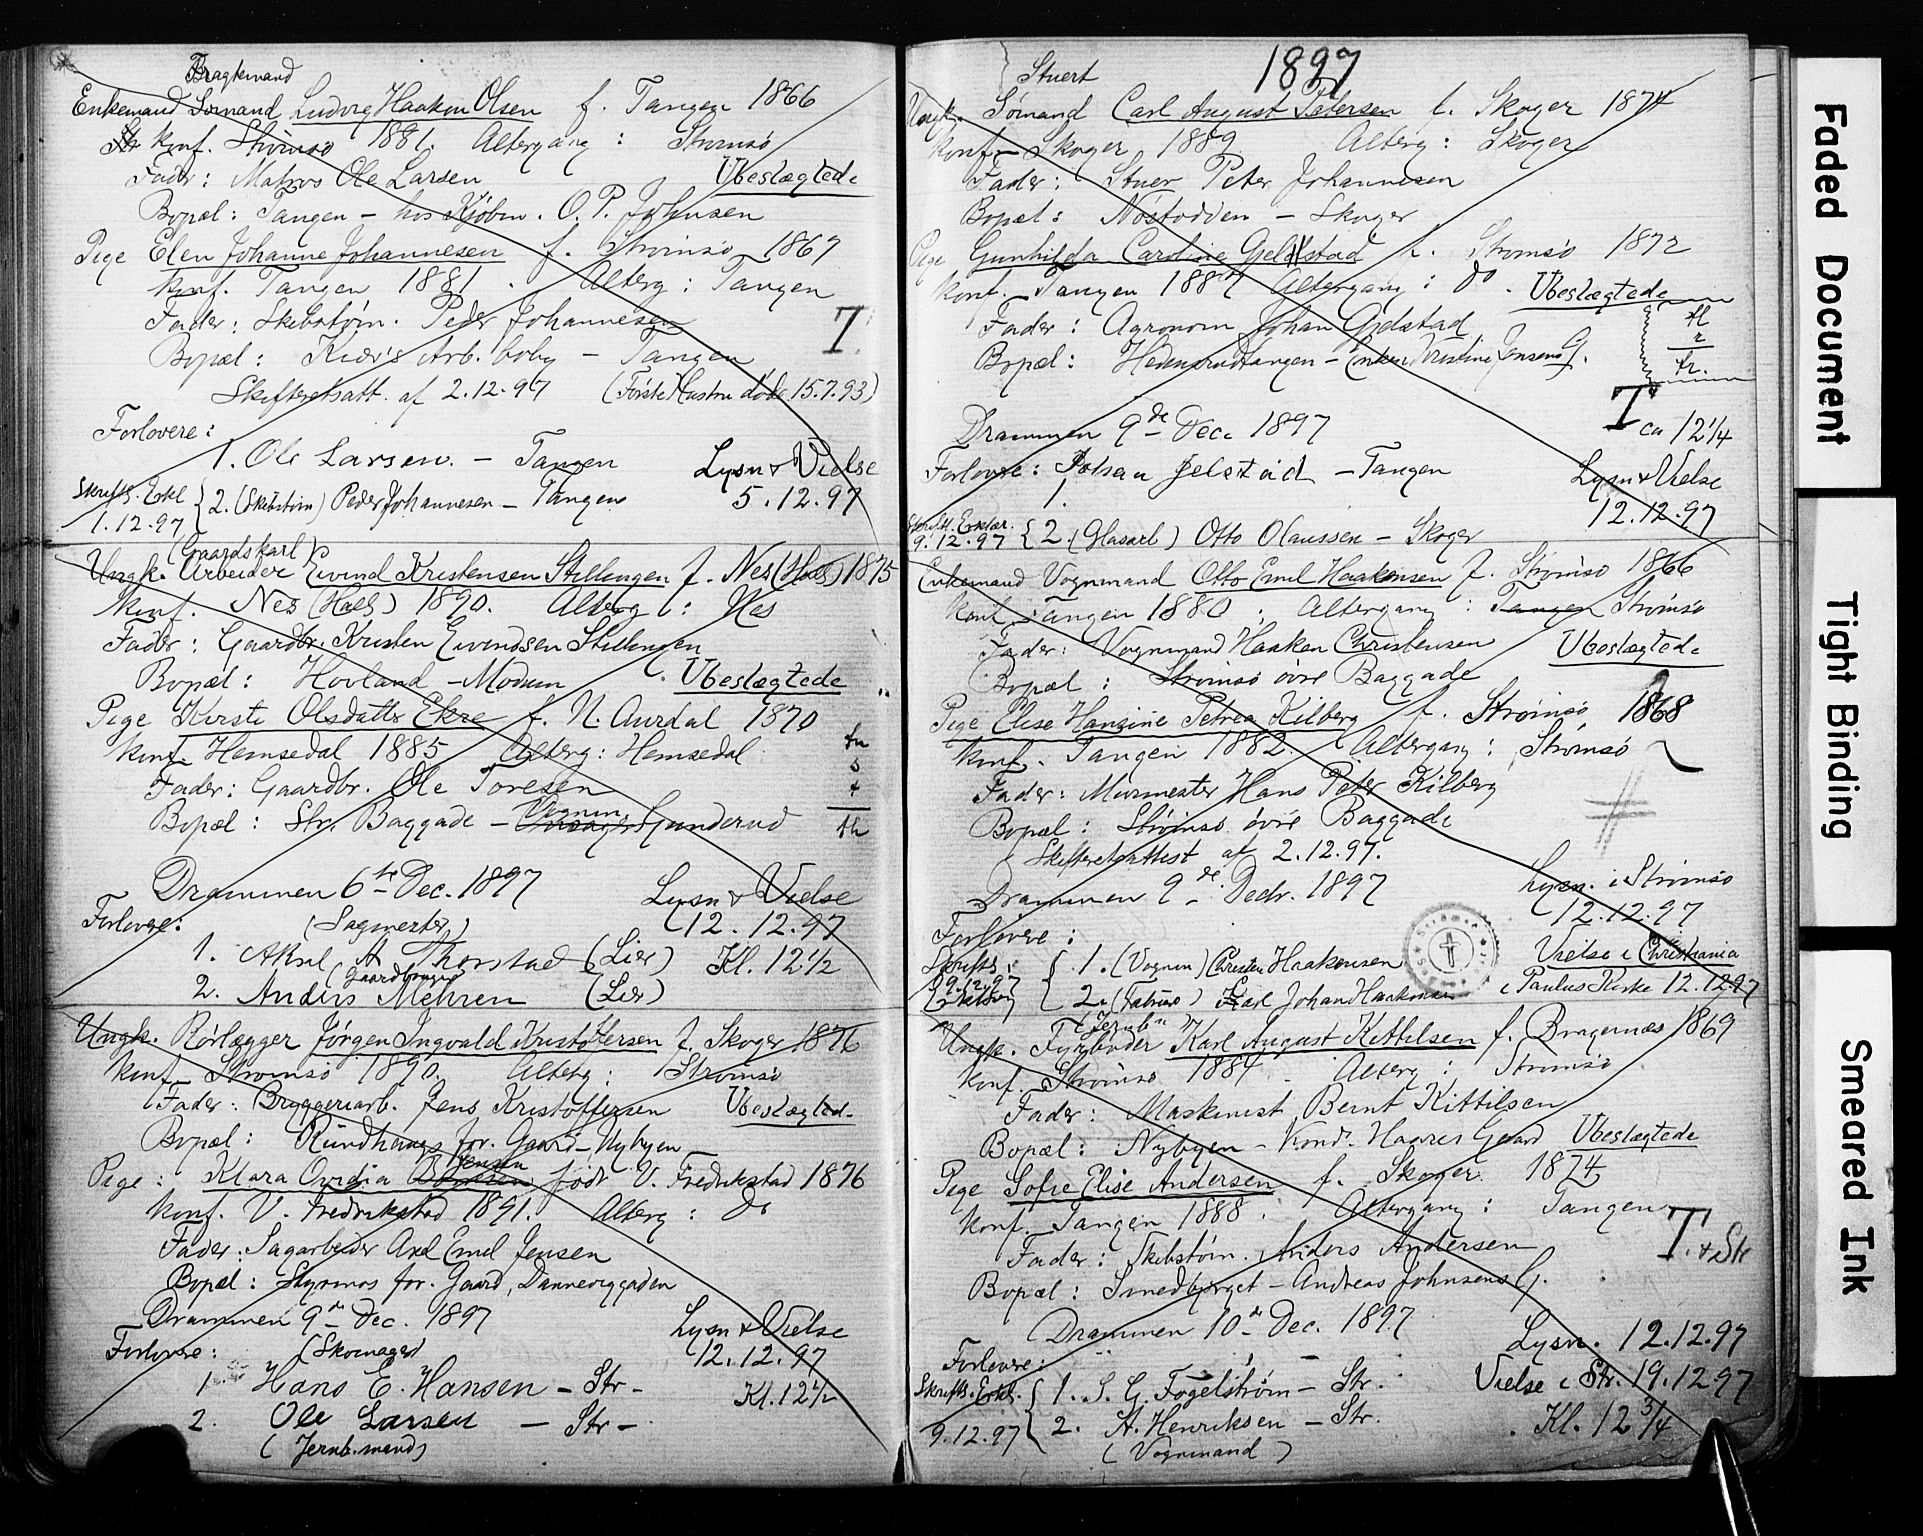 Fragtemand
Enkemand Sømand Ludvig Haaken Olsen f. Tangen 1866
Konf. Strømsø 1881. Altergang: Strømsø
Fader: Matros Ole Larsen Ubeslægtede
Bopæl: Tangen - hos Kjøbm. O. P. Johnsen
Pige Elen Johanne Johannesen f. Strømsø 1867
Konf. Tangen 1881. Alterg: Tangen
Fader: Skibstøm. Peder Johannesen T.
Bopæl: Kiær's Arb. bolig - Tangen
Skifteretsatt. af 2.12.97 (Første Hustru døde 15.7.93)
Forlovere:
1. Ole Larsen. - Tangen Lysn & Vielse
Skriftl. Erkl 1.12.97 { 2. (Skibstøm) Peder Johannesen - Tangen 5.12.97
(Gaardskarl)
Ungk. Arbeider Eivind Kristensen Stillingen f. Nes (Hall) 1875
Konf. Nes (Hall) 1890. Alterg: Nes
Fader: Gaardbr. Kristen Eivindsen Stillingen
Bopæl: Hovland - Modum Ubeslægtede
Pige Kirsti Olsdatter Ekre f. N. Aurdal 1870
Konf. Hemsedal 1885 Alterg: Hemsedal
Fader: Gaardbr. Ole Toresen
Bopæl: Str. Baggade - Vognm. Gunderud
Drammen 6te Dec. 1897 Lysn & Vielse
Forlovere: (Sagmester) 12.12.97
1. Aksel A Thorstad (Lier) Kl. 12 1/2
(Gaardbruger)
2. Anders Mehren (Lier)
Ungk. Rørlægger Jørgen Ingvald Kristoffersen f. Skoger 1876
Konf. Strømsø 1890. Alterg: Strømsø
Fader: Bryggeriarb. Jens Kristoffersen Ubeslægted.
Bopæl: Rundhaugs for. Gaard - Nybyen
Jensen
Pige: Klara Ovidia født V. Fredrikstad 1876
Konf. V. Fredrikstad 1891. Alterg: Do
Fader: Sagarbeider Axel Emil Jensen
Bopæl: Styrmos for. Gaard, Danneviggaden
Drammen 9de Dec. 1897 Lysn & Vielse
Forlovere: (Skomager) 12.12.97
1 Hans E. Hansen - Str - Kl. 12 1/2
2. Ole Larsen - Str -
(Jernb. mand)
1897
Stuert
Ungk. Sømand Carl August Petersen f. Skoger 1874
Konf. Skoger 1889 Alterg: Skoger
Fader: Stuer Peter Johannesen
Bopæl: Nøstodden - Skoger
Pige Gunhilda Caroline Gjelstad f. Strømsø 1872
Konf. Tangen 1887 Altergang: Do. Ubeslægtede
Fader: Agronom Johan Gjelstad
Bopæl: Hedensrudtangen - Enken Kristine Jensens G.
T ca 12 1/4
Drammen 9de Dec. 1897
Forlovere: Johan Gjelstad - Tangen Lysn & Vielse
1. 12.12.97
Skriftl. Erklær. 9.12.97 { 2. (Glasarb) Otto Olaussen - Skoger
Enkemand Vognmand Otto Emil Haakensen f. Strømsø 1866
Konf Tangen 1880. Altergang: Tangen Strømsø
Fader: Vognmand Haaken Christensen Ubeslægtede
Bopæl: Strømsø øvre Baggade
Pige Elise Hansine Petrea Kilberg f. Strømsø 1868
Konf. Tangen 1882. Altergang: Strømsø
Fader: Murmester Hans Peter Kilberg
Bopæl: Strømsø øvre Baggade
Skifteretsattest af 2.12.97.
Drammen 9de Decbr. 1897 Lysn. i Strømsø
Forlovere: 12.12.97
Skriftl. { 1. (Vognm) Christen Haakensen Vielse i Christiania
9.12.97 2. Karl Johan Haakensen i Paulus Kirke 12.12.97
(Jernbn)
Ungk. Fyrbøder Karl August Kittilsen f. Bragernæs 1869
Konf. Strømsø 1884. Alterg: Strømsø
Fader: Maskinist Bernt Kittilsen
Bopæl: Nybyen - Kond. Haares Gaard Ubeslægtede
Pige Sofie Elise Andersen f. Skoger 1874
Konf. Tangen 1888. Altergang: Tangen
Fader: Skibstøm. Anders Andersen T. & Sk
Bopæl: Smedbjerget - Andreas Johnsens G.
Drammen 10de Dec. 1897 Lysn. 12.12.97
Forlovere:
Skriftl. Erkl. { 1. S. G. Fogelstrøm - Str. Vielse i Str. 19.12.97
9.12.97 2. A. Henriksen - Str. Kl. 12 3/4
(Vognmand)
Faded Document
Tight Binding
Smeared Ink